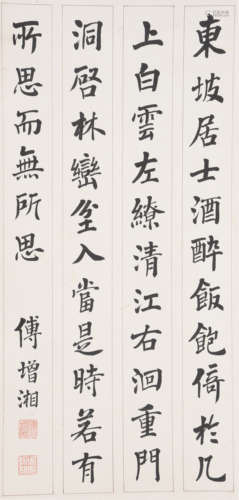 東坡居士酒醉飯飽倚於几
上白雲左繚清江右洄重門
洞啓林巒坌入當是時若有
所思而無所思
傅增湘